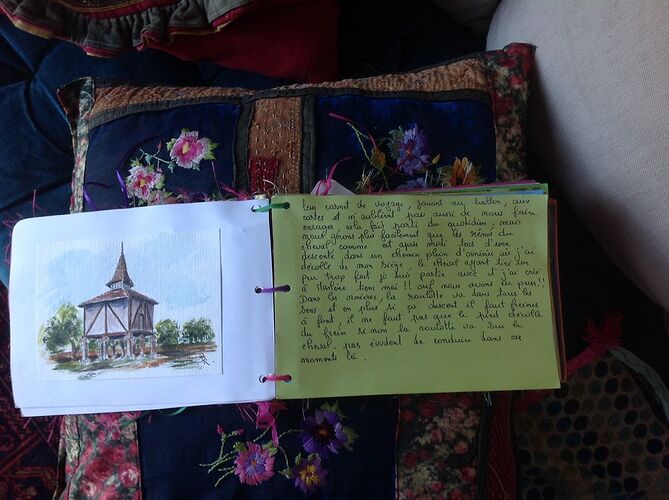 leur carnet de voyage, jouons au ballon, aux
cartes et n'oublient pas aussi de nous faire
enrager, cela fait parti du quotidien, mais
nous gérons plus facilement que les rênes du
cheval comme cet après midi lors d'une
descente dans un chemin plein d'ornière où j'ai
décollé de mon siège le cheval ayant tiré un
peu trop fort je suis partie avec et j'ai crié
à Marlène tiens moi !! ouf nous avons eu peur !!
Dans les ornières la roulotte va dans tous les
sens et en plus si ça descend il faut freiner
à fond, il ne faut pas que le pied décolle
du frein si non la roulotte va sur le
cheval. pas évident de conduire dans ces
moments là.